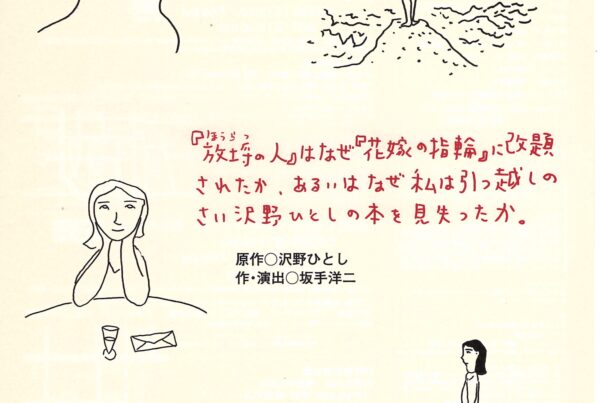 『放埒の人』はなぜ『花嫁の指輪』に改題
ほうらつ
されたか、あるいはなぜ私は引っ越しの
さい沢野ひとしの本を見失ったか。
原作○沢野ひとし
作・演出○坂手洋二